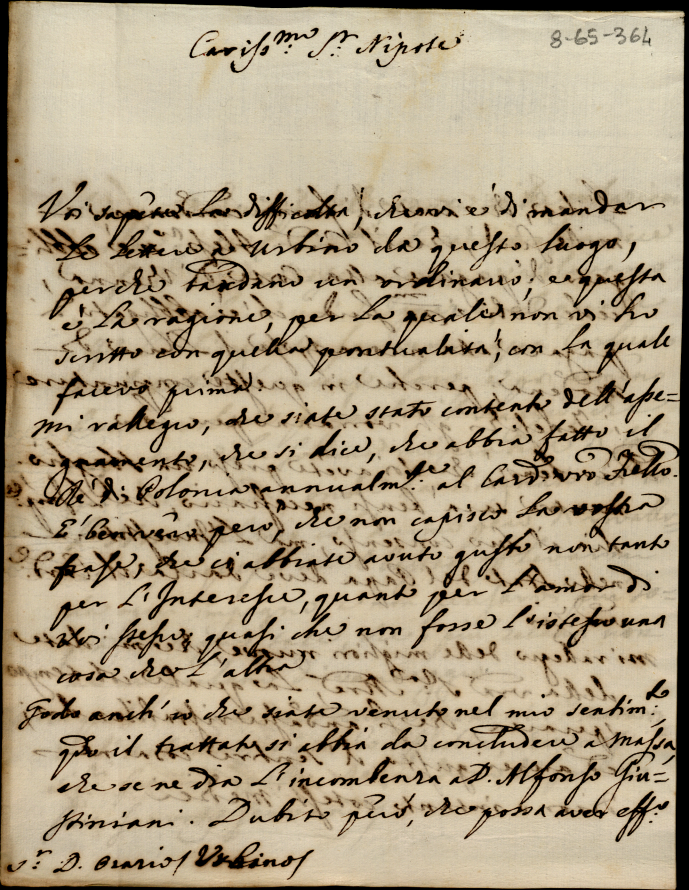 8-65-364
Cariss.mo S.r Nipote
Voi sapete la difficoltà, che vi è di mandar
le lettere a Urbino da questo luogo,
perche tardano un ordinario; e questa
è la ragione, per la quale non vi ho
scritto con quella pontualità, con la quale
facevo prima
mi rallegro, che siate stato contento dell'asse=
gnamento, che si dice, che abbia fatto il
Rè di Polonia annualm.te al Card. vr̃o Frello.
E' ben vero però, che non capisco la vostra
frase, che ci abbiate avuto gusto non tanto
per l'Interesse, quanto per l'amor di
voi stesso, quasi che non fosse l'istesso una
cosa che l'altra
Godo anch'io che siate venuto nel mio sentim.to
che il trattato si abbia da concludere a Massa,
che se ne dia l'incombenza a D. Alfonso Giu=
stiniani. Dubito però, che possa aver eff.o
S.r D. Orazio Urbino